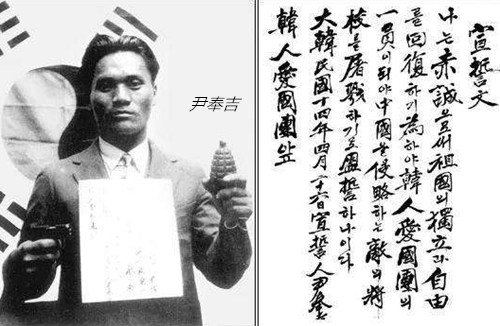 尹奉吉
宣誓文
나는赤誠으로써祖國의獨立과自由
를回復하기爲하야韓人愛國團의
一員이되야中國을侵略하는敵의將
校를屠戮하기로盟誓하나이다
大韓民國十四年四月二十六日宣誓人尹奉吉
韓人愛國團앞